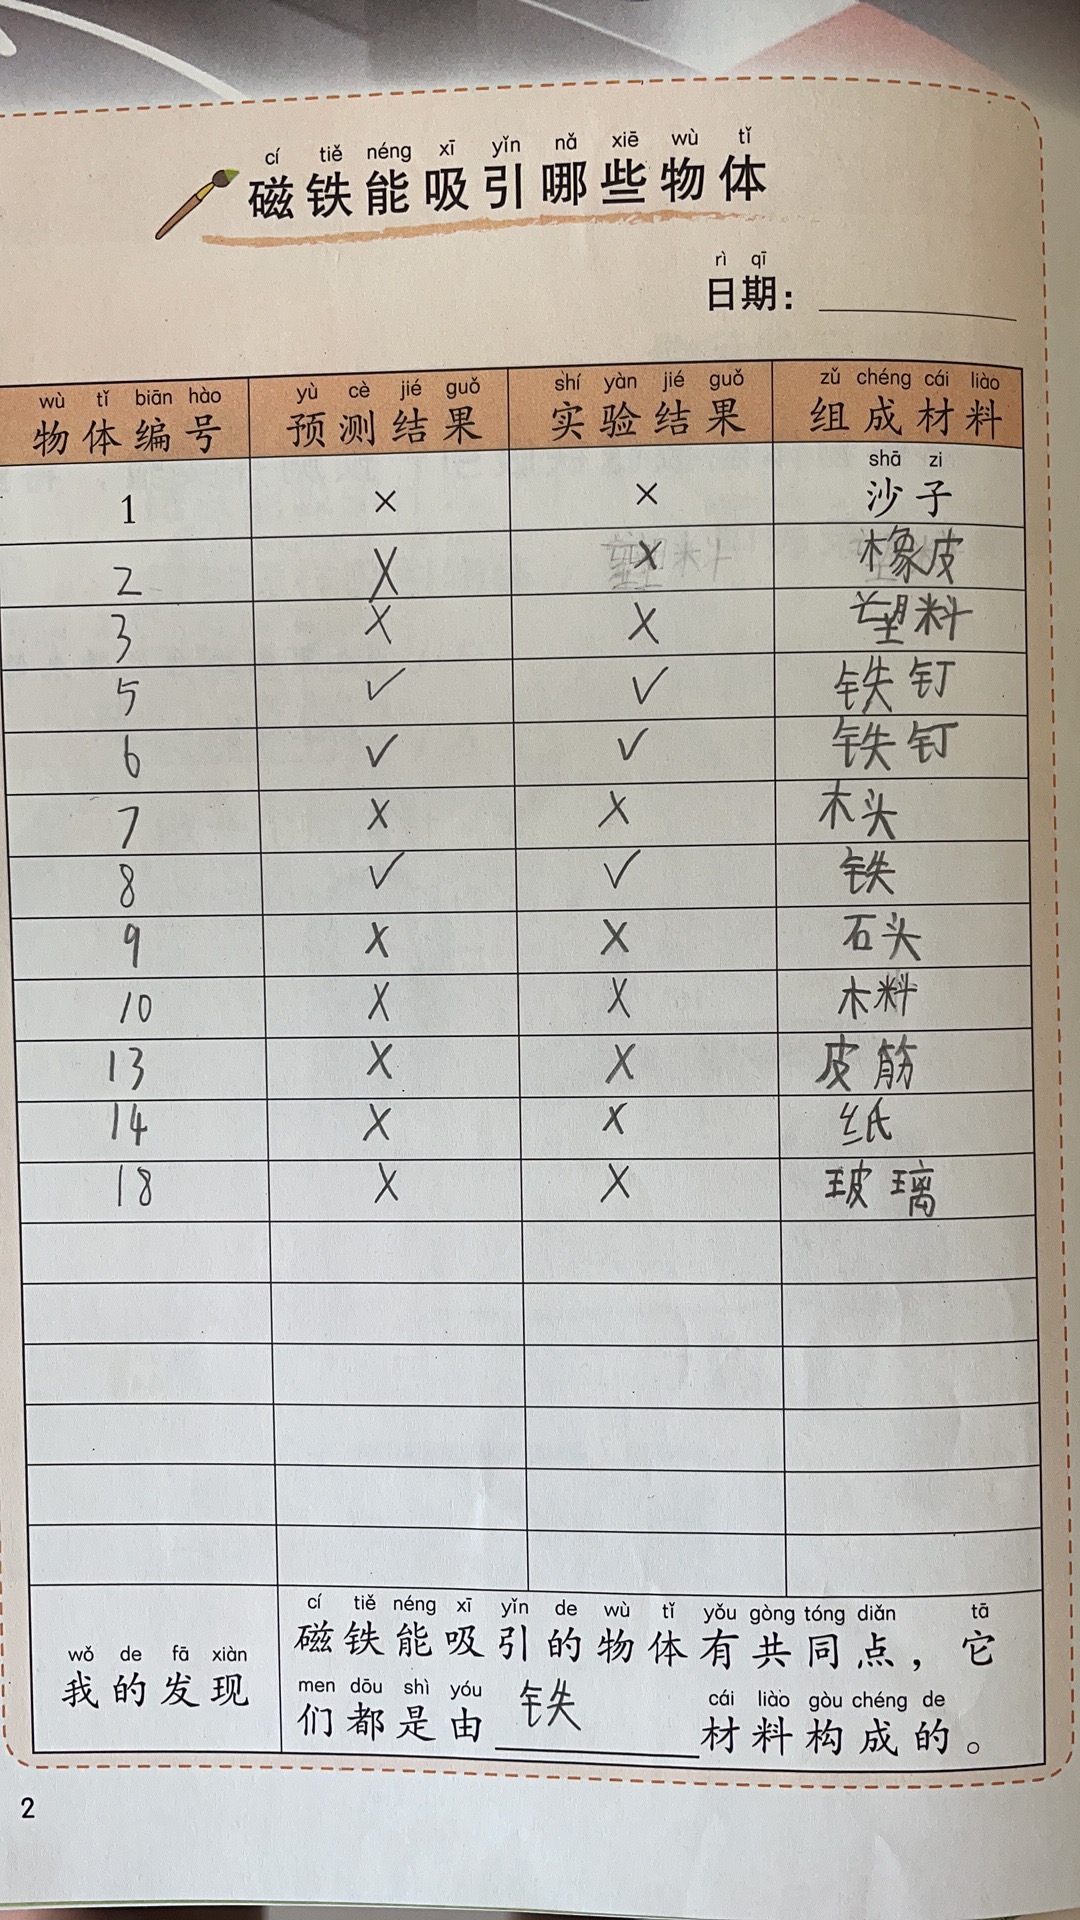 cí tiě néng xī yǐn nǎ xiē wù tǐ
磁铁能吸引哪些物体
rì qī
日期：
wù tǐ biān hào yù cè jié guǒ shí yàn jié guǒ zǔ chéng cái liào
物体编号 预测结果 实验结果 组成材料
shā zi
1 × × 沙子
2 × × 橡皮
3 × × 塑料
5 ✓ ✓ 铁钉
6 ✓ ✓ 铁钉
7 × × 木头
8 ✓ ✓ 铁
9 × × 石头
10 × × 木料
13 × × 皮筋
14 × × 纸
18 × × 玻璃
wǒ de fā xiàn
我的发现
cí tiě néng xī yǐn de wù tǐ yǒu gòng tóng diǎn tā
磁铁能吸引的物体有共同点，它
men dōu shì yóu cái liào gòu chéng de
们都是由 铁 材料构成的。
2